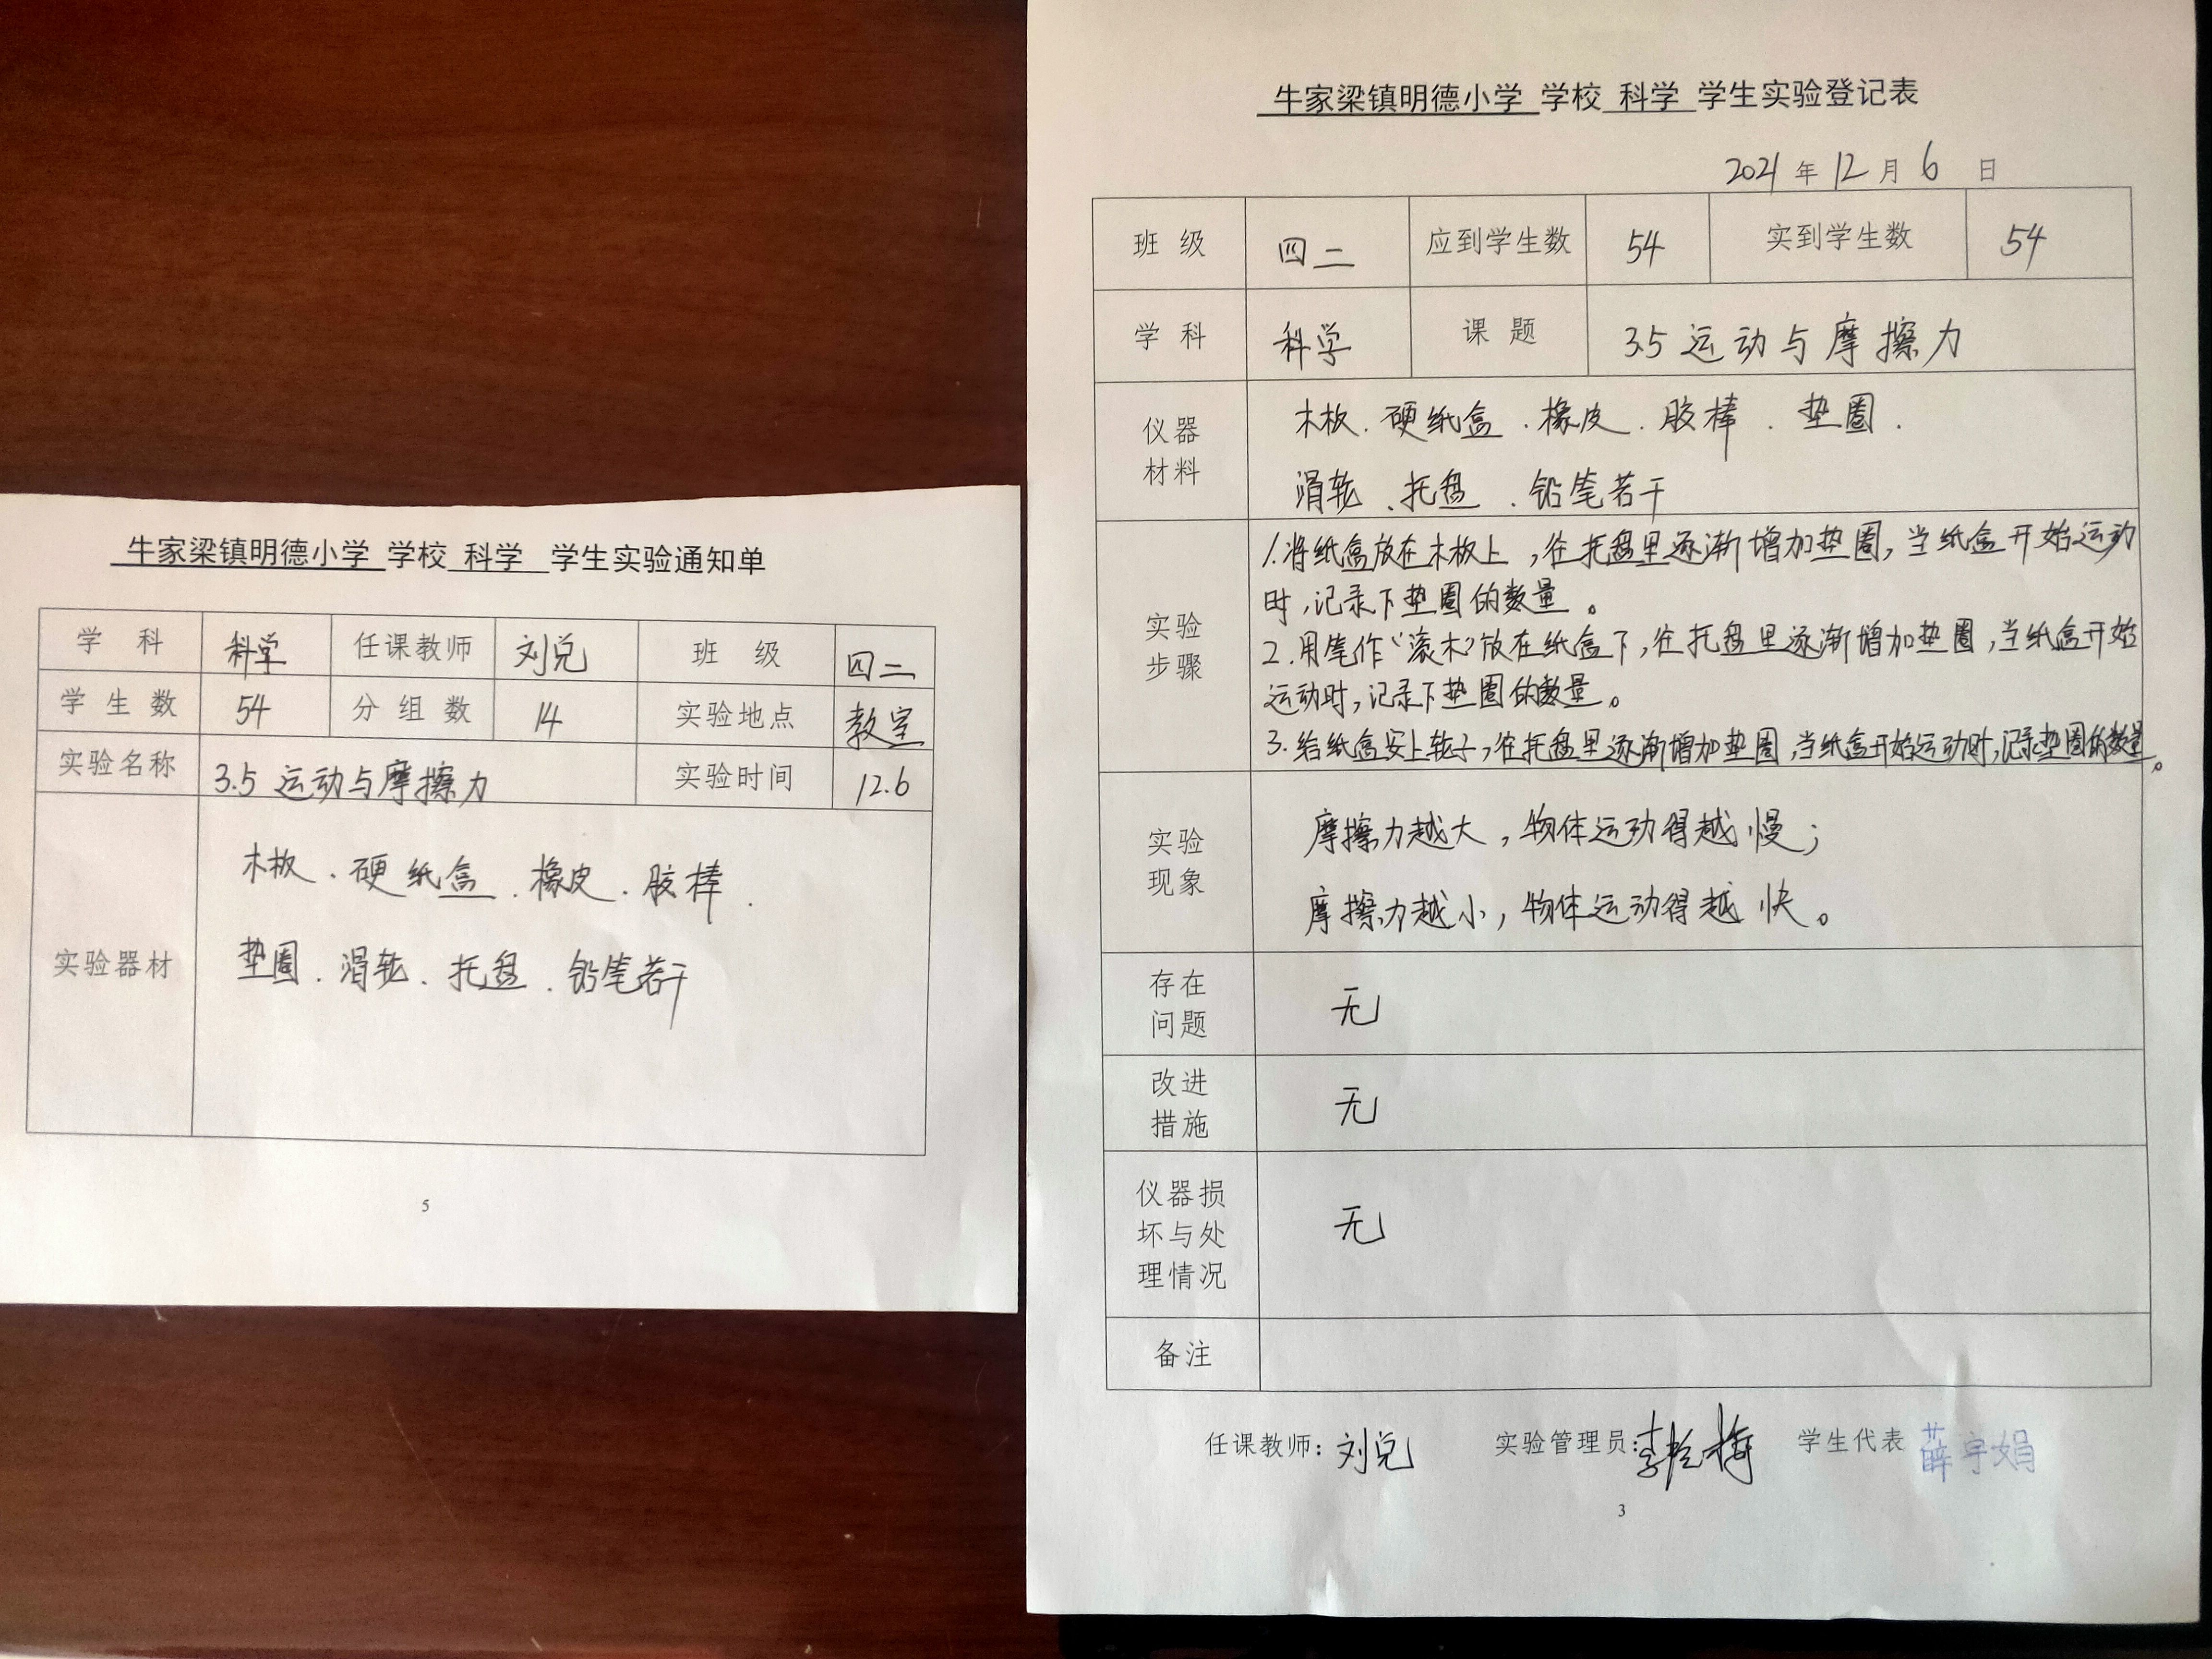 牛家梁镇明德小学 学校 科学 学生实验通知单
学 科 科学 任课教师 刘兑 班 级 四二
学 生 数 54 分 组 数 14 实验地点 教室
实验名称 3.5 运动与摩擦力 实验时间 12.6
实验器材
木板、硬纸盒、橡皮、胶棒、
垫圈、滑轮、托盘、铅笔若干
5
牛家梁镇明德小学 学校 科学 学生实验登记表
2021 年 12 月 6 日
班 级 四二 应到学生数 54 实到学生数 54
学 科 科学 课 题 3.5 运动与摩擦力
仪器
材料
木板、硬纸盒、橡皮、胶棒、垫圈、
滑轮、托盘、铅笔若干
实验
步骤
1.将纸盒放在木板上,往托盘里逐渐增加垫圈,当纸盒开始运动
时,记录下垫圈的数量。
2.用笔作“滚木”放在纸盒下,往托盘里逐渐增加垫圈,当纸盒开始
运动时,记录下垫圈的数量。
3.给纸盒安上轮子,往托盘里逐渐增加垫圈,当纸盒开始运动时,记录垫圈的数量。
实验
现象
摩擦力越大,物体运动得越慢;
摩擦力越小,物体运动得越快。
存在
问题
无
改进
措施
无
仪器损
坏与处
理情况
无
备注
任课教师:刘兑 实验管理员: 学生代表 薛宇娟
3